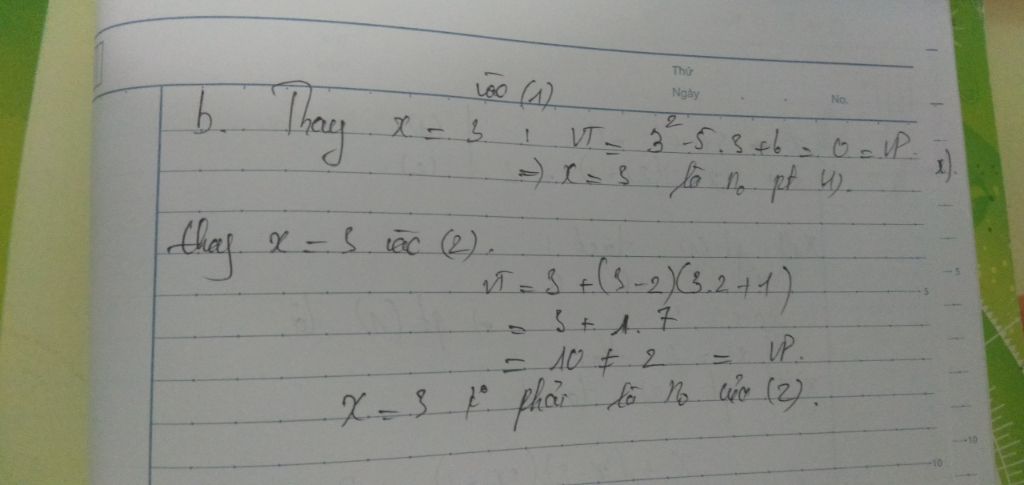 Thứ
Ngày . . No.
b. Thay x = 3 vào (1) : VT = 3² - 5.3 + 6 = 0 = VP.
=> x = 3 là no pt (1).
x).
thay x = 3 vào (2).
VT = 3 + (3-2)(3.2+1)
= 3 + 1.7
= 10 ≠ 2 = VP.
x = 3 ko phải là no của (2).
5
5
10
10